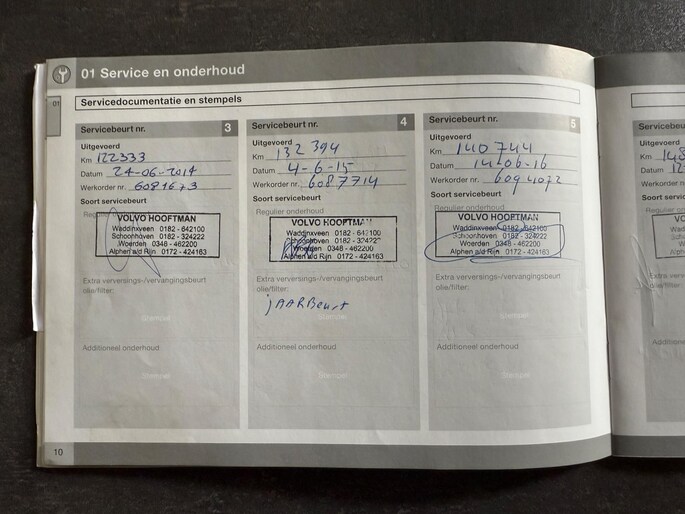 01 Service en onderhoud
01
Servicedocumentatie en stempels
Servicebeurt nr. 3
Uitgevoerd
Km 122333
Datum 24-06-2014
Werkorder nr. 6081673
Soort servicebeurt
VOLVO HOOFTMAN
Waddinxveen 0182 - 642100
Schoonhoven 0182 - 324222
Woerden 0348 - 462200
Alphen a/d Rijn 0172 - 424163
Extra verversings-/vervangingsbeurt
olie/filter:
Stempel
Additioneel onderhoud
Stempel
Servicebeurt nr. 4
Uitgevoerd
Km 132394
Datum 4-6-15
Werkorder nr. 6087714
Soort servicebeurt
Regulier onderhoud
VOLVO HOOFTMAN
Waddinxveen 0182 - 642100
Schoonhoven 0182 - 324222
Woerden 0348 - 462200
Alphen a/d Rijn 0172 - 424163
Extra verversings-/vervangingsbeurt
olie/filter:
jAARBeurt
Stempel
Additioneel onderhoud
Stempel
Servicebeurt nr. 5
Uitgevoerd
Km 140744
Datum 14-06-16
Werkorder nr. 6094072
Soort servicebeurt
Regulier onderhoud
VOLVO HOOFTMAN
Waddinxveen 0182 - 642100
Schoonhoven 0182 - 324222
Woerden 0348 - 462200
Alphen a/d Rijn 0172 - 424163
Extra verversings-/vervangingsbeurt
olie/filter:
Stempel
Additioneel onderhoud
Stempel
10
Uitgevoerd
Km
Datum
Werkorder
Soort serv